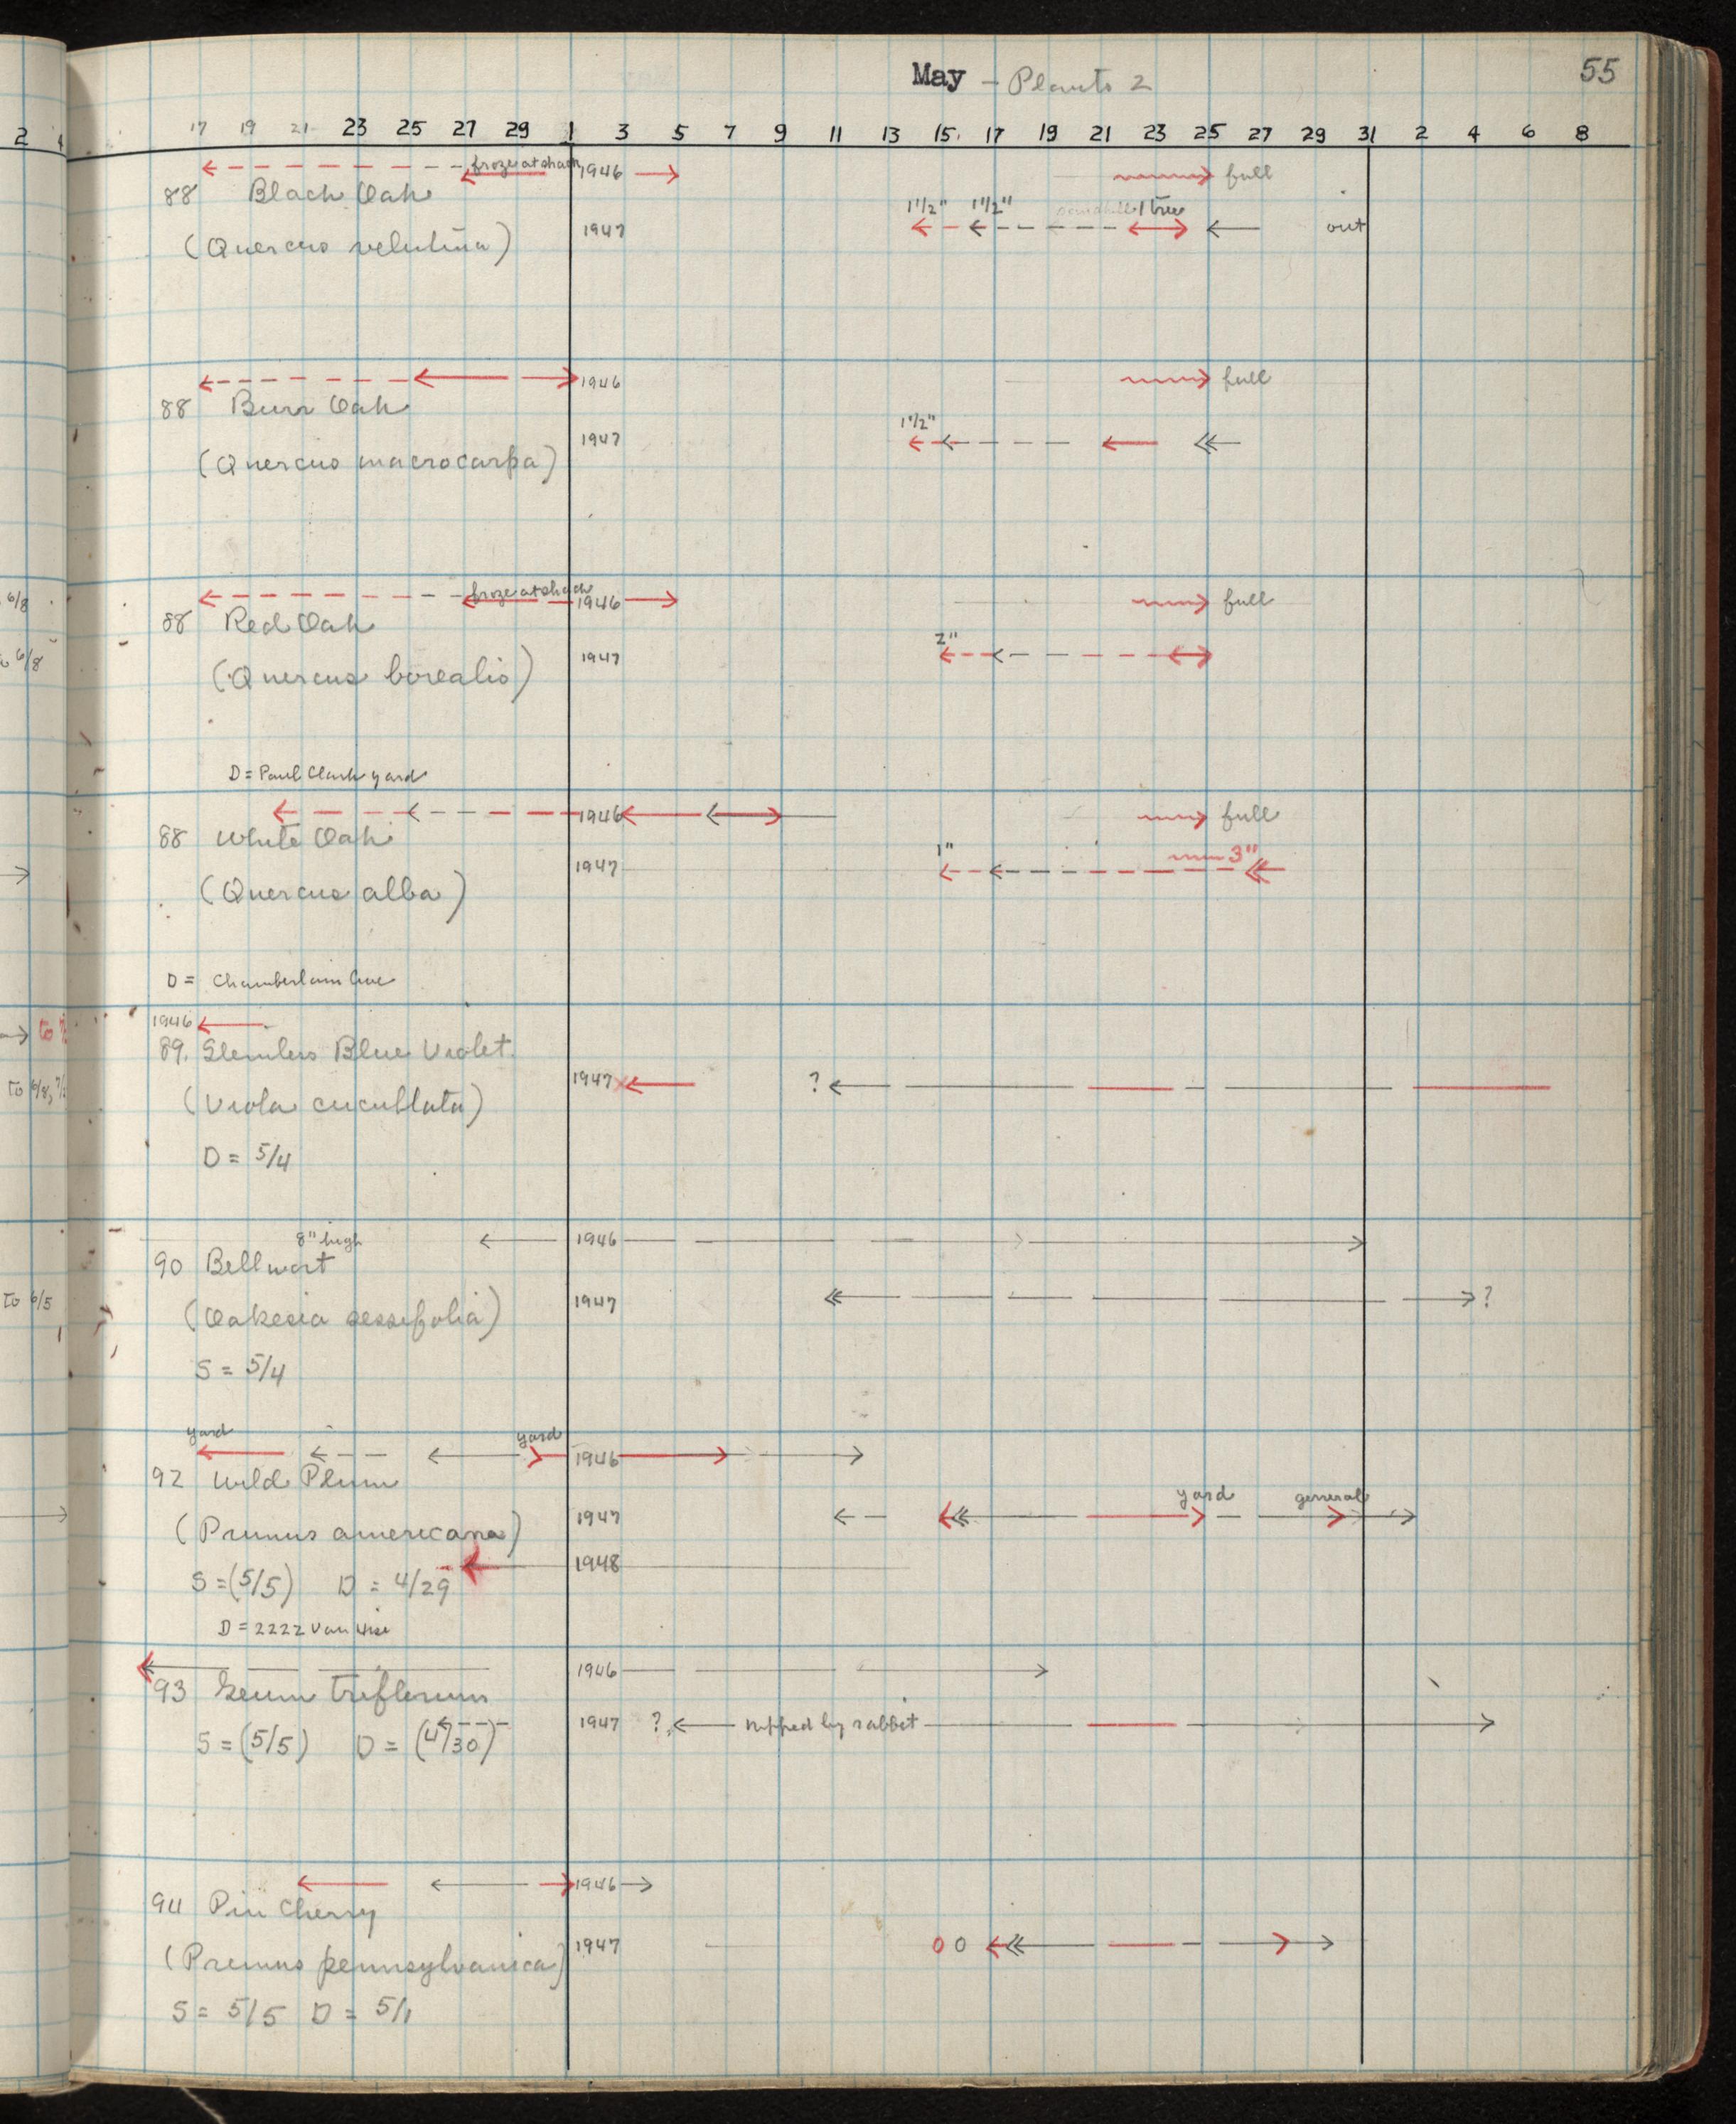 May - Plants 2
55
2 4
17 19 21 23 25 27 29 1 3 5 7 9 11 13 15 17 19 21 23 25 27 29 31 2 4 6 8
froze at shack 1946 full
88 Black Oak
1½" 1½" 1 tree
(Quercus velutina) 1947 out
1946 full
88 Burr Oak
1½"
1947
(Quercus macrocarpa)
froze at shack 1946 full
6/8
88 Red Oak
2"
6/8
1947
(Quercus borealis)
D = Paul Clark yard
1946 full
88 White Oak
1" 3"
1947
(Quercus alba)
D = Chamberlain Ave
1946
to
89. Stemless Blue Violet
1947 ?
to 6/8,
(Viola cucullata)
D = 5/4
8" high 1946
90 Bellwort
to 6/5
1947 ?
(Oakesia sessifolia)
S = 5/4
yard yard
1946
92 Wild Plum
yard general
1947
(Prunus americana)
1948
S = (5/5) D = 4/29
D = 2222 Van Hise
1946
93 Geum triflorum
1947 ? nipped by rabbit
S = (5/5) D = (4/30)
1946
94 Pin Cherry
1947 0 0
(Prunus pennsylvanica)
S = 5/5 D = 5/1